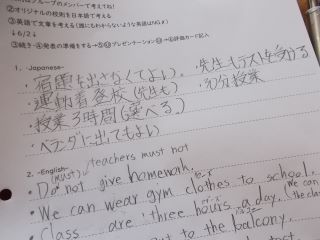 ループのメンバーで考えてね!
②オリジナルの校則を日本語で考える
③英語で文章を考える(誰にもわからないような英語はNG♪)
↓6/2↓
③続き・④発表の準備をする→⑤ プレゼンテーション →⑥評価カード記入
1. -Japanese-
・宿題を出さなくてよい。 ・先生もテストを受ける
・運動着登校(先生も) ・30分授業
・授業3時間(選べる。)
・ベランダに出てもよい
2. -English-
(must) / teachers must not
• Do not give homework.
• We can wear gym clothes to school.
• Class are three hours a day. (We can
the class
out to the balcony.